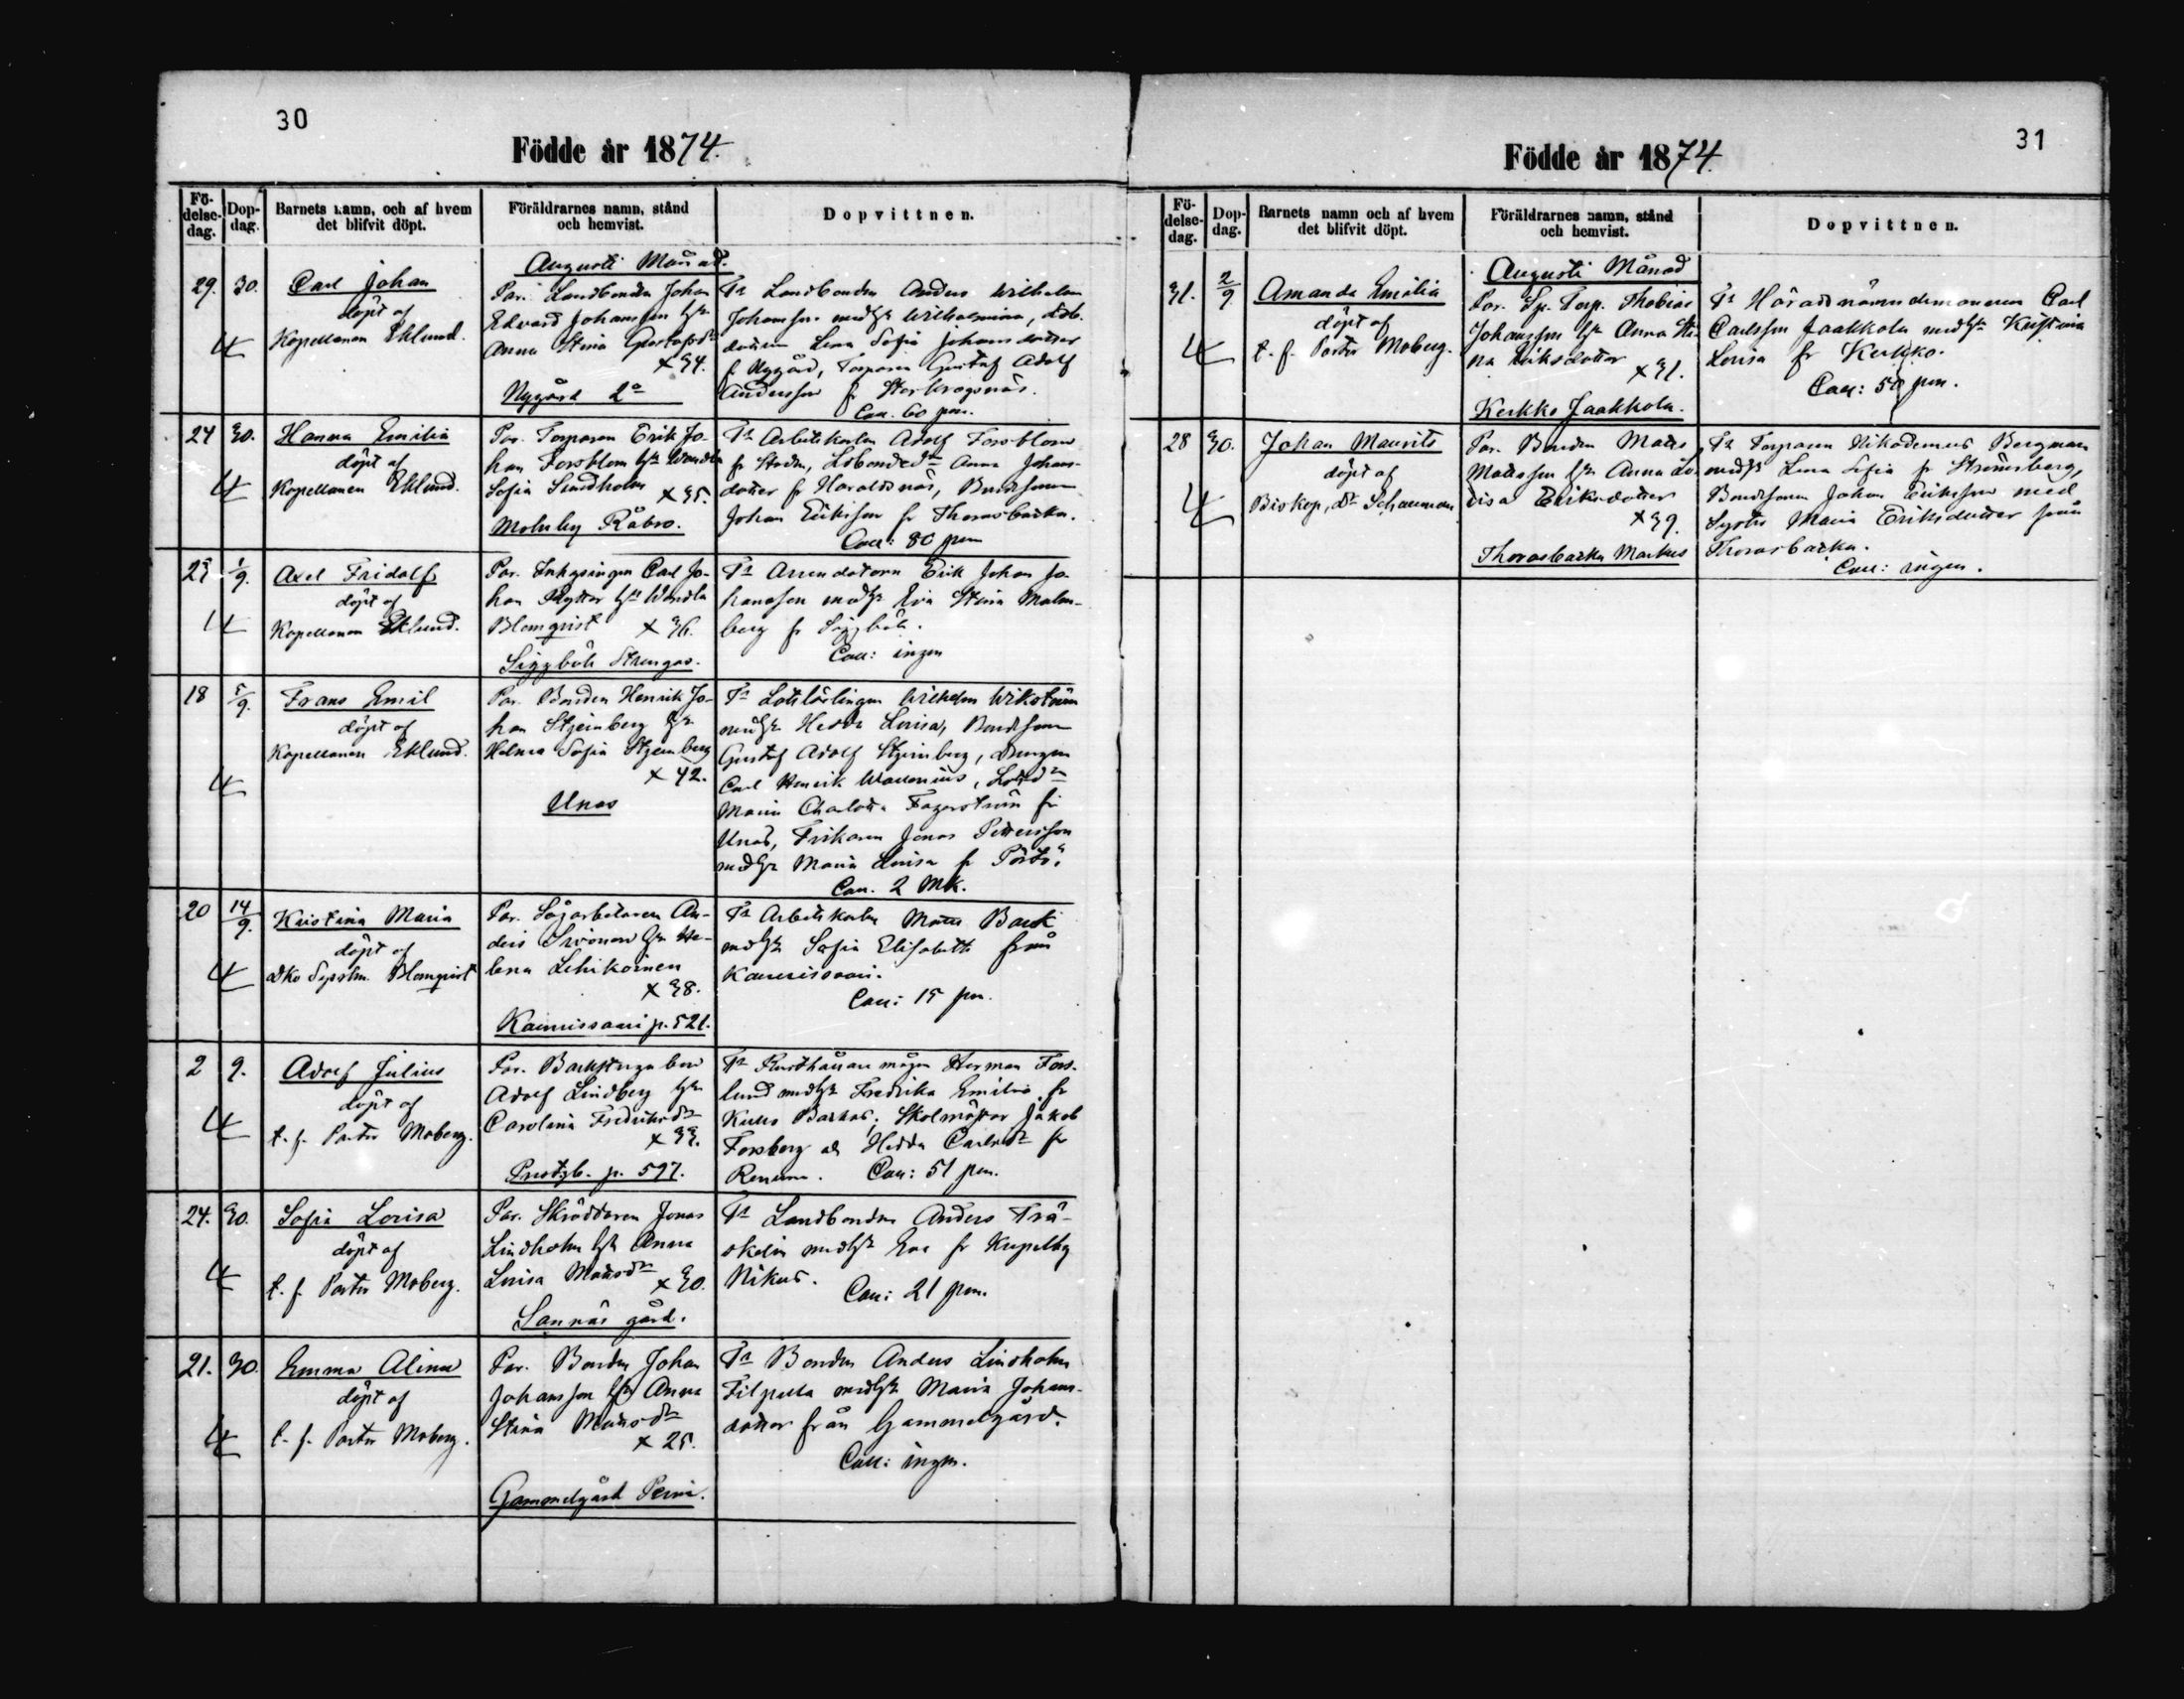 30
Födde år 1874.
Fö-
delse-
dag.
Dop-
dag.
Barnets namn, och af hvem
det blifvit döpt.
Föräldrarnes namn, stånd
och hemvist.
Dopvittnen.
Augusti Månad.
29. 30.
Carl Johan
döpt af
Kapellanen Eklund.
Par. Landbonden Johan
Edvard Johansson hstr
Anna Stina Gustafsdr
x 34.
Nygård 2a
Fr Landbonden Anders Wilhelm
Johansson medhstr Wilhelmina, Ldb.
dottern Lena Sofia Johansdotter
fr Nygård, Torparen Gustaf Adolf
Andersson fr Storkrogsnäs.
Coll. 60 pen.
24 30.
Hanna Emilia
döpt af
Kapellanen Eklund.
Par. Torparen Erik Jo-
han Forsblom hstr Wendla
Sofia Sundholm x 35.
Molnby Råbro.
Fr Arbetskarlen Adolf Forsblom
fr Staden, Lsbondedr Anna Johans-
dotter fr Haraldsnäs, Bondsonen
Johan Eriksson fr Thorasbacka.
Coll: 80 pen
1/9.
Axel Fridolf
döpt af
Kapellanen Eklund.
Par. Inhysingen Carl Jo-
han Ryttar hstr Wendla
Blomqvist x 36.
Siggböle Strengas.
Fr Arrendatorn Erik Johan Jo-
hansson medhstr Eva Stina Malm-
berg fr Siggböle.
Coll: ingen
18 5/9.
Frans Emil
döpt af
Kapellanen Eklund.
Par. Bonden Henrik Jo-
han Stjernberg hstr
Helena Sofia Stjernberg
x 42.
Unas
Fr Lotslärlingen Wilhelm Wikström
medhstr Hedda Lovisa, Bondsonen
Gustaf Adolf Stjernberg, Drengen
Carl Henrik Wallenius, Lotsdr
Maria Charlotta Fagerström fr
Unas, Fiskaren Jonas Pettersson
medhstr Maria Lovisa fr Pörtö.
Coll. 2 Mk.
20 14/9.
Kristina Maria
döpt af
Blomqvist
Par. Sågarbetaren An-
ders Sivonen hstr He-
lena Lehikoinen
x 38.
Kaunissaari p. 521.
Fr Arbetskarlen Matts Back
medhstr Sofia Elisabeth från
Kaunissaari.
Coll: 15 pen.
2 9.
Adolf Julius
döpt af
t. f. Pastor Moberg.
Par. Backstugubon
Adolf Lindberg hstr
Carolina Fredriksdr
x 33.
Prestgb. p. 597.
Fr Rusthållaremågen Herman Fors-
lund medhstr Fredrika Emilia fr
Kullo Backas, Skolmästar Jakob
Forsberg och Hedda Carlsdr fr
Renum. Coll: 51 pen.
24. 30.
Sofia Lovisa
döpt af
t. f. Pastor Moberg.
Par. Skräddaren Jonas
Lindholm hstr Anna
Lovisa Mattsdr x 30.
Sannäs gård.
Fr Landbonden Anders Trä-
skelin medhstr Eva fr Kupelby
Nikus. Coll: 21 pen.
21. 30.
Emma Alina
döpt af
t. f. Pastor Moberg.
Par. Bonden Johan
Johansson hstr Anna
Stina Mattsdr
x 25.
Gammelgård Perni.
Fr Bonden Anders Lindholm
Filpula medhstr Maria Johans-
dotter från Gammelgård.
Coll: ingen.
31
Födde år 1874.
Fö-
delse-
dag.
Dop-
dag.
Barnets namn och af hvem
det blifvit döpt.
Föräldrarnes namn, stånd
och hemvist.
Dopvittnen.
Augusti Månad
31. 2/9
Amanda Emilia
döpt af
t. f. Pastor Moberg.
Par. Sp. Torp. Thobias
Johansson hstr Anna Sti-
na Eriksdotter
x 31.
Kerkko Jaakkola.
Fr Häradsnämndemannen Carl
Carlsson Jaakkola medhstr Kristina
Lovisa fr Kerkko.
Coll: 50 pen.
28 30.
Johan Maurits
döpt af
Biskop, Dr Schauman
Par. Bonden Matts
Mattsson hstr Anna Lo-
visa Eriksdotter
x 39.
Thorasbacka Markus
Fr Torparen Nikodemus Bergman
medhstr Lena Sofia fr Strömsberg,
Bondsonen Johan Eriksson med
Syster Maria Eriksdotter från
Thorasbacka.
Coll: ingen.